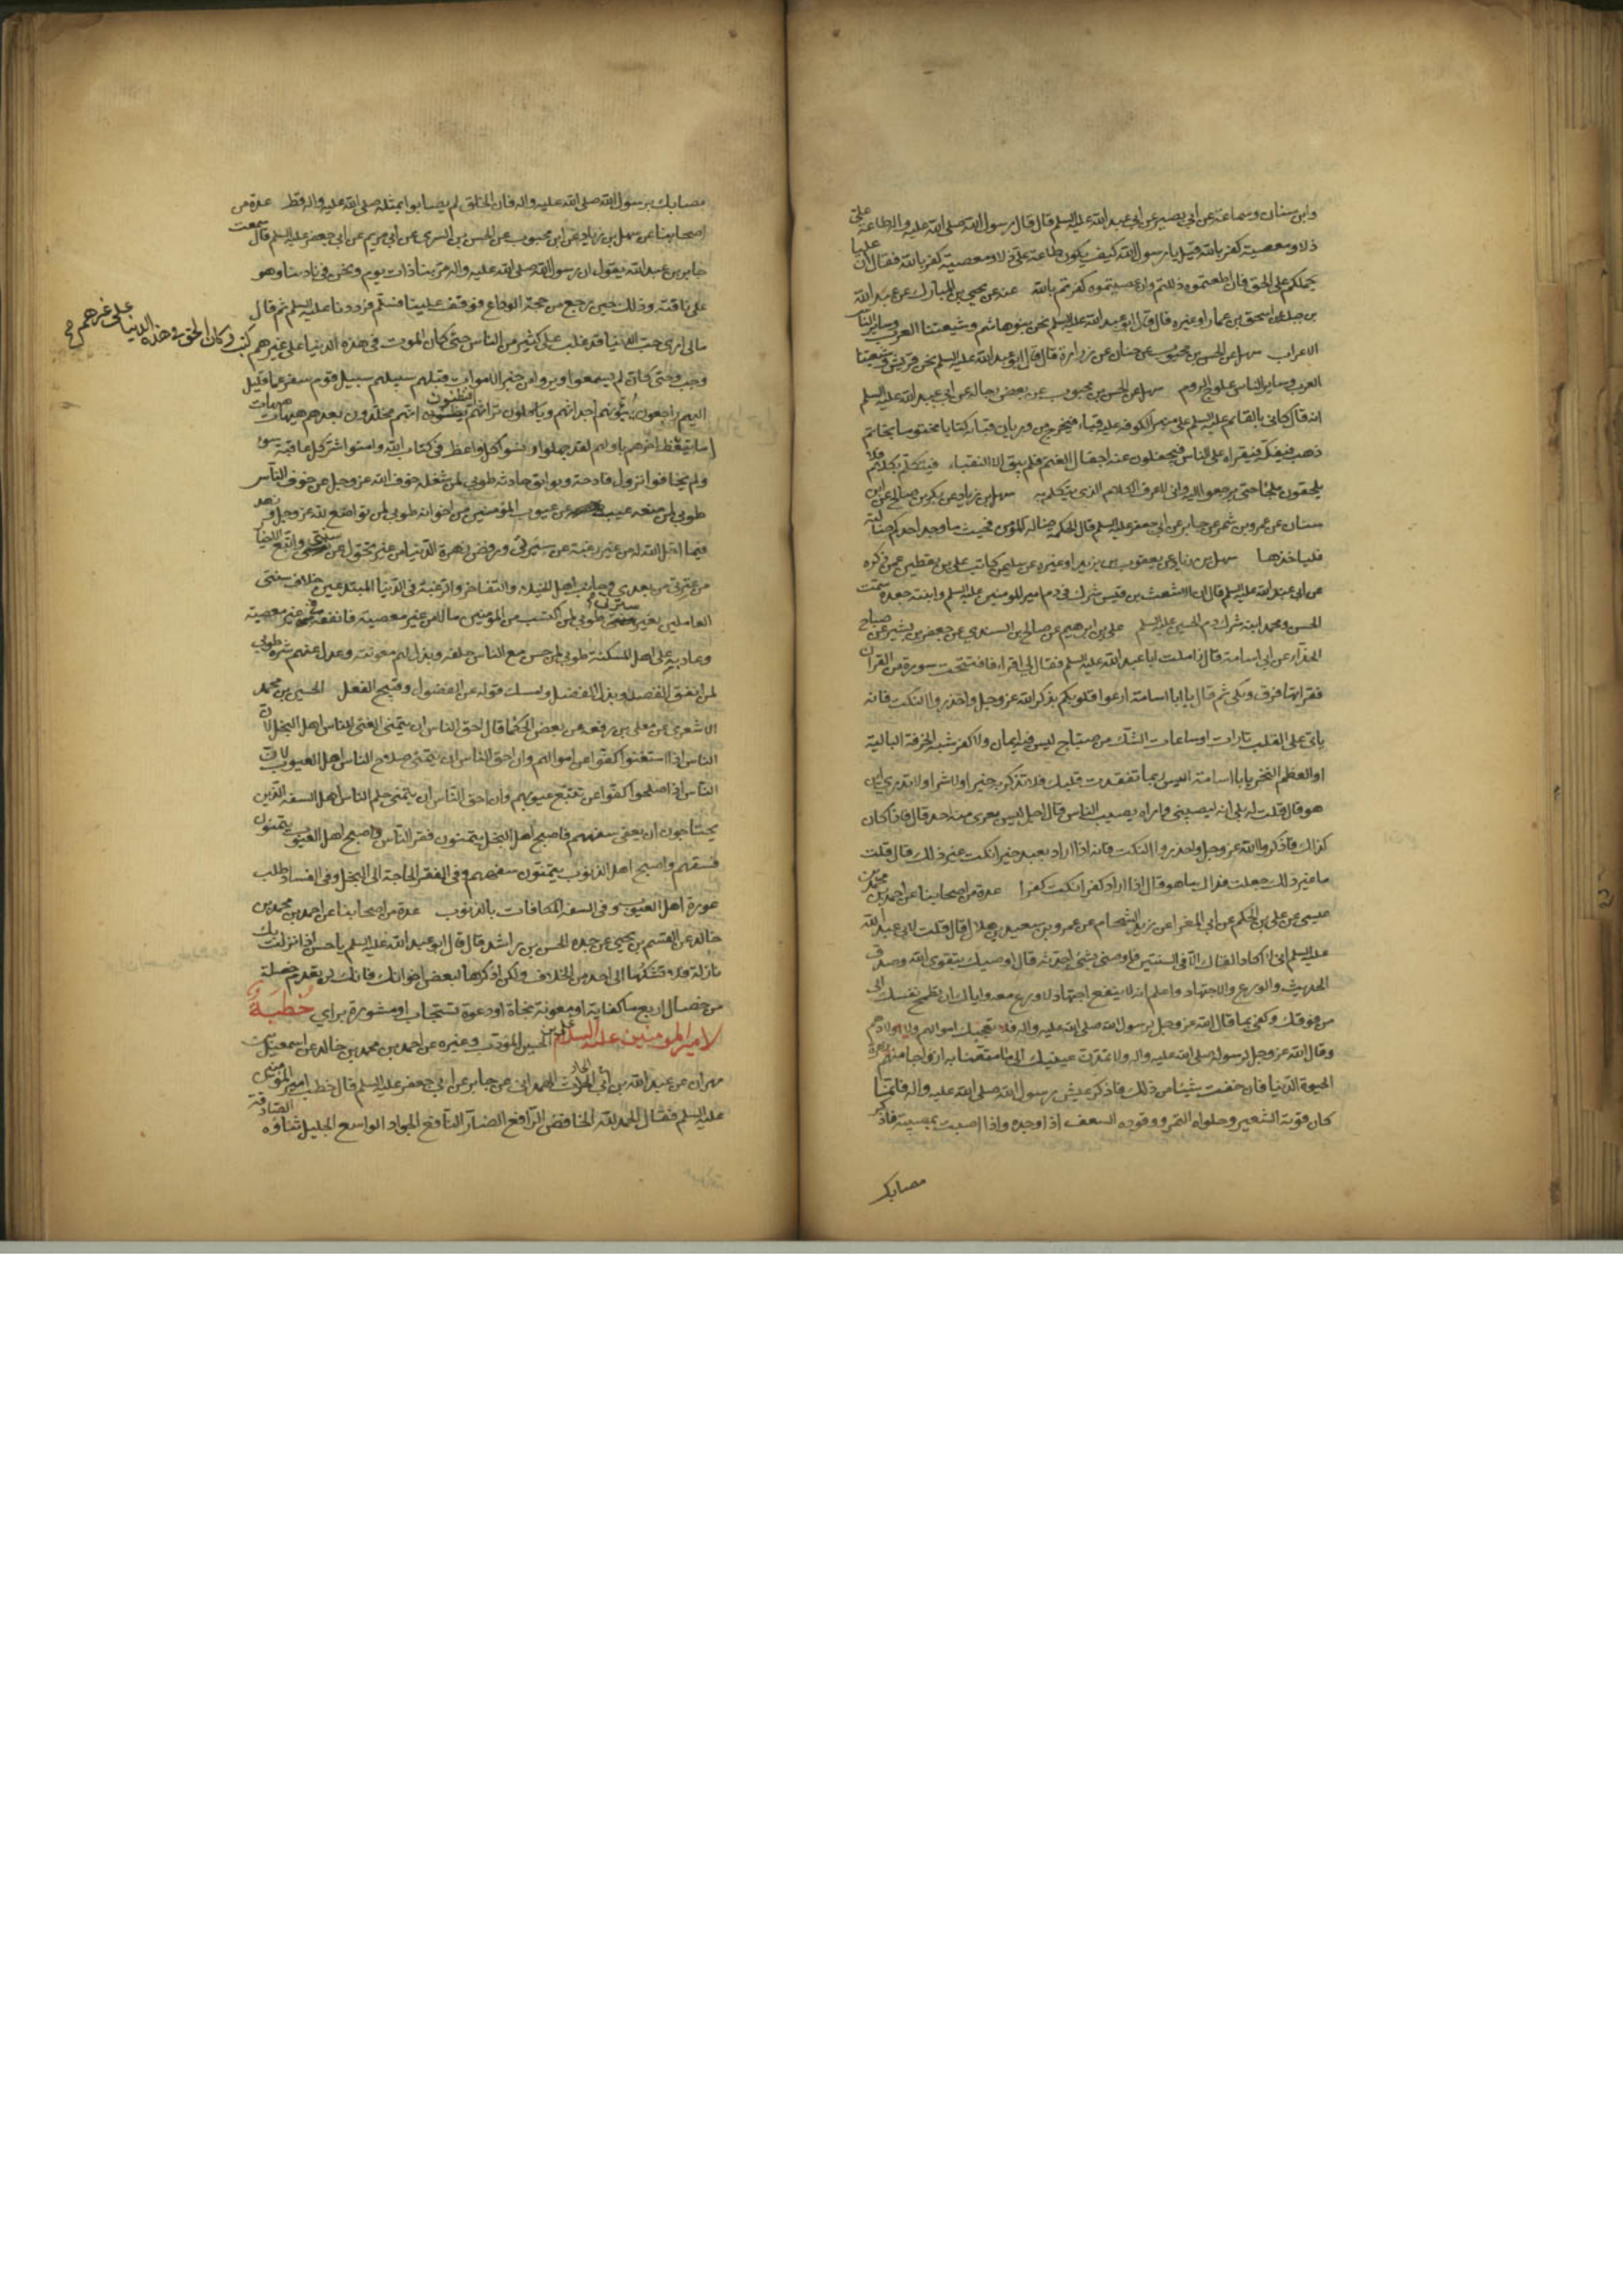 وابن سنان وسماعة عن ابي بصير عن ابي عبد الله عليه السلم قال قال رسول الله صلى الله عليه واله طاعة علي
ذل ومعصيته كفر بالله قيل يا رسول الله كيف يكون طاعة علي ذلا ومعصيته كفر بالله فقال ان عليا
يحملكم على الحق فان اطعتموه ذللتم وان عصيتموه كفرتم بالله عنه عن يحيى بن المبارك عن عبد الله
بن جبلة عن اسحق بن عمار او غيره قال قال ابو عبد الله عليه السلم نحن بنو هاشم وشيعتنا العرب وساير الناس
الاعراب سهل عن الحسن بن محبوب عن حنان عن زرارة قال قال ابو عبد الله عليه السلم نحن قريش وشيعتنا
العرب وساير الناس علوج الروم سهل عن الحسن بن محبوب عن بعض رجاله عن ابي عبد الله عليه السلم
انه قال كاني بالقايم عليه السلم على منبر الكوفة عليه قباء فيخرج من وريان قبائه كتابا مختوما بخاتم
ذهب فيفكه فيقراه على الناس فيجفلون عنه اجفال الغنم فلم يبق الا النقباء فيتكلم بكلام فلا
يلحقون ملجأ حتى يرجعوا اليه واني لاعرف الكلام الذي يتكلم به سهل بن زياد عن بكر بن صالح عن ابن
سنان عن عمرو بن شمر عن جابر عن ابي جعفر عليه السلم قال الحكمة ضالة المؤمن فحيث ما وجد احدكم ضالته
فلياخذها سهل بن زياد عن يعقوب بن يزيد او غيره عن سليمن كاتب علي بن يقطين عمن ذكره
عن ابي عبد الله عليه السلم قال ان الاشعث بن قيس شرك في دم امير المومنين عليه السلم وابنته جعدة سمت
الحسن ومحمد ابنه شرك في دم الحسين عليه السلم علي بن ابرهيم عن صالح بن السندي عن جعفر بن بشير عن صباح
الحذاء عن ابي اسامة قال زاملت ابا عبد الله عليه السلم فقال لي اقرا فافتتحت سورة من القران
فقراتها فرق وبكى ثم قال يا ابا اسامة ارعوا قلوبكم بذكر الله عز وجل واحذروا النكت فانه
ياتي على القلب تارات او ساعات الشك من صباح ليس فيه ايمان ولا كفر شبه الخرقة البالية
او العظم النخر يا ابا اسامة اليس ربما تفقدت قلبك فلا تذكر به خيرا ولا شرا ولا تدري اين
هو قال قلت له بلى انه ليصيبني واراه يصيب الناس قال اجل ليس يعرى منه احد قال فاذا كان
كذلك فاذكروا الله عز وجل واحذروا النكت فانه اذا اراد بعبد خيرا نكت غير ذلك قال قلت
ما غير ذلك جعلت فداك ما هو قال اذا اراد كفرا نكت كفرا عدة من اصحابنا عن احمد بن محمد بن
عيسى عن علي بن الحكم عن ابي المغرا عن زيد الشحام عن عمرو بن سعيد بن هلال قال قلت لابي عبد الله
عليه السلم اني لا اكاد القاك الا في السنتين فاوصني بشئ اخذ به قال اوصيك بتقوى الله وصدق
الحديث والورع والاجتهاد واعلم انه لا ينفع اجتهاد لا ورع معه واياك ان تطمح نفسك الى
من فوقك وكفى بما قال الله عز وجل لرسول الله صلى الله عليه واله فلا تعجبك اموالهم ولا اولادهم
وقال الله عز وجل لرسوله صلى الله عليه واله ولا تمدن عينيك الى ما متعنا به ازواجا منهم زهرة
الحيوة الدنيا فان خفت شيئا من ذلك فاذكر عيش رسول الله صلى الله عليه واله فانما
كان قوته الشعير وحلواه التمر ووقوده السعف اذا وجده واذا اصبت بمصيبة فاذكر
مصابك
مصابك برسول الله صلى الله عليه واله فان الخلق لم يصابوا بمثله صلى الله عليه واله قط عدة من
اصحابنا عن سهل بن زياد عن ابن محبوب عن الحسن بن السري عن ابي مريم عن ابي جعفر عليه السلم قال سمعت
جابر بن عبد الله يقول ان رسول الله صلى الله عليه واله مر بنا ذات يوم ونحن في نادينا وهو
على ناقته وذلك حين رجع من حجة الوداع فوقف علينا فسلم فرددنا عليه السلم ثم قال
مالي ارى حب الدنيا قد غلب على كثير من الناس حتى كان الموت في هذه الدنيا على غيرهم كتب وكان الحق في هذه الدنيا على غيرهم
وجب وحتى كان لم يسمعوا ويروا من خبر الاموات قبلهم سبيلهم سبيل قوم سفر عما قليل
اليهم راجعون بيوتهم اجداثهم وياكلون تراثهم يظنون انهم مخلدون بعدهم هيهات هيهات
اما يتعظ اخرهم باولهم لقد جهلوا ونسوا كل واعظ في كتاب الله وامنوا شر كل عاقبة سوء
ولم يخافوا نزول فادحة وبوايق حادثة طوبى لمن شغله خوف الله عز وجل عن خوف الناس
طوبى لمن منعه عيبه عن عيوب المؤمنين من اخوانه طوبى لمن تواضع لله عز وجل وزهد
فيما احل الله له من غير رغبة عن سيرتي ورفض زهرة الدنيا من غير تحول عن سنتي واتبع الاخيار
من عترتي من بعدي وجانب اهل الخيلاء والتفاخر والرغبة في الدنيا المبتدعين خلاف سنتي
العاملين بغير سيرتي طوبى لمن اكتسب من المؤمنين مالا من غير معصية فانفقه في غير معصية
وعاد به على اهل المسكنة طوبى لمن حسن مع الناس خلقه وبذل لهم معونته وعدل عنهم شره طوبى
لمن انفق القصد وبذل الفضل وامسك قوله عن الفضول وقبيح الفعل الحسين بن محمد
الاشعري عن معلى بن محمد رفعه عن بعض الحكما قال احق الناس ان يتمنى الغنى للناس اهل البخل لان
الناس اذا استغنوا كفوا عن اموالهم وان احق الناس ان يتمنى صلاح الناس اهل العيوب لان
الناس اذا صلحوا كفوا عن تتبع عيوبهم وان احق الناس ان يتمنى حلم الناس اهل السفه الذين
يحتاجون ان يعفى سفههم فاصبح اهل البخل يتمنون فقر الناس واصبح اهل العيوب يتمنون
فسقهم واصبح اهل الذنوب يتمنون سفههم وفي الفقر الحاجة الى البخل وفي الفساد طلب
عورة اهل العيوب وفي السفه المكافات بالذنوب عدة من اصحابنا عن احمد بن محمد بن
خالد عن القسم بن يحيى عن جده الحسن بن راشد قال قال ابو عبد الله عليه السلم يا حسن اذا نزلت بك
نازلة فلا تشكها الى احد من اهل الخلاف ولكن اذكرها لبعض اخوانك فانك لن تعدم خصلة
من خصال اربع اما كفاية او معونة بجاه او دعوة تستجاب او مشورة براي خطبة
لامير المومنين عليه السلام علي بن الحسين المؤدب وغيره عن احمد بن محمد بن خالد عن اسمعيل بن
مهران عن عبد الله بن ابي الحارث الهمداني عن جابر عن ابي جعفر عليه السلم قال خطب امير المؤمنين
عليه السلم فقال الحمد لله الخافض الرافع الضار النافع الجواد الواسع الجليل ثناؤه الصادقة